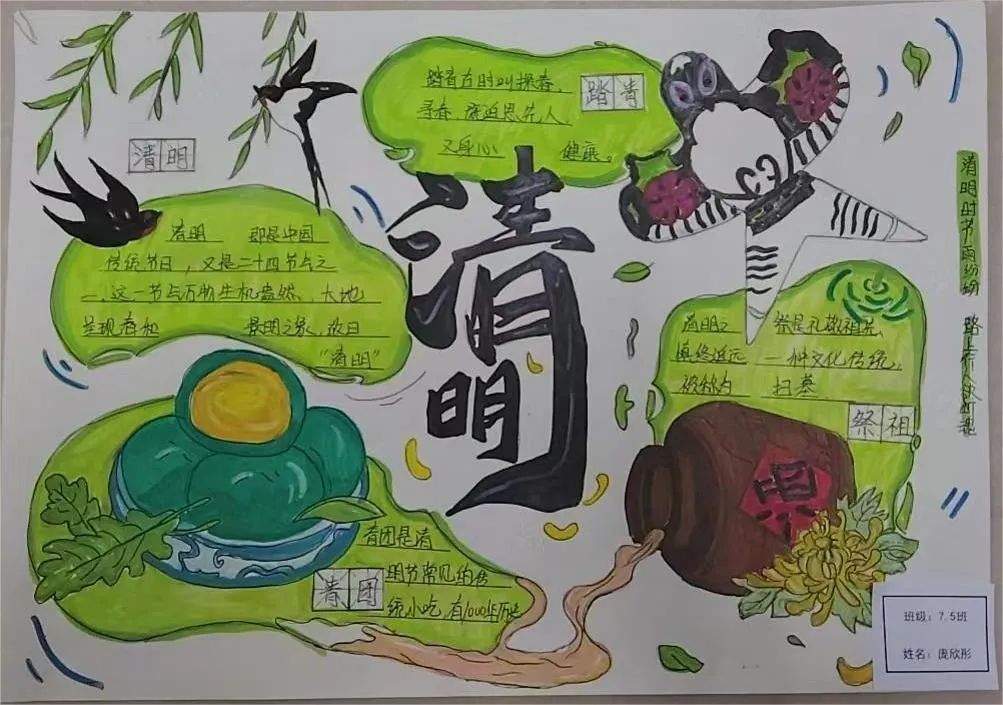 清明
清明 即是中国
传统节日，又是二十四节气之
一，这一节气万物生机盎然、大地
呈现春和 景明之象，故曰
“清明”
踏青
踏青古时叫探春，
寻春，
又身心 健康。
清明
清明之 祭是礼敬祖先
慎终追远 一种文化传统，
被称为 扫墓
祭祖
清明时节雨纷纷 路上行人欲断魂
青团是清
明节常见的传
统小吃，有1000年历史
青团
班级：7.5班
姓名：庞欣彤